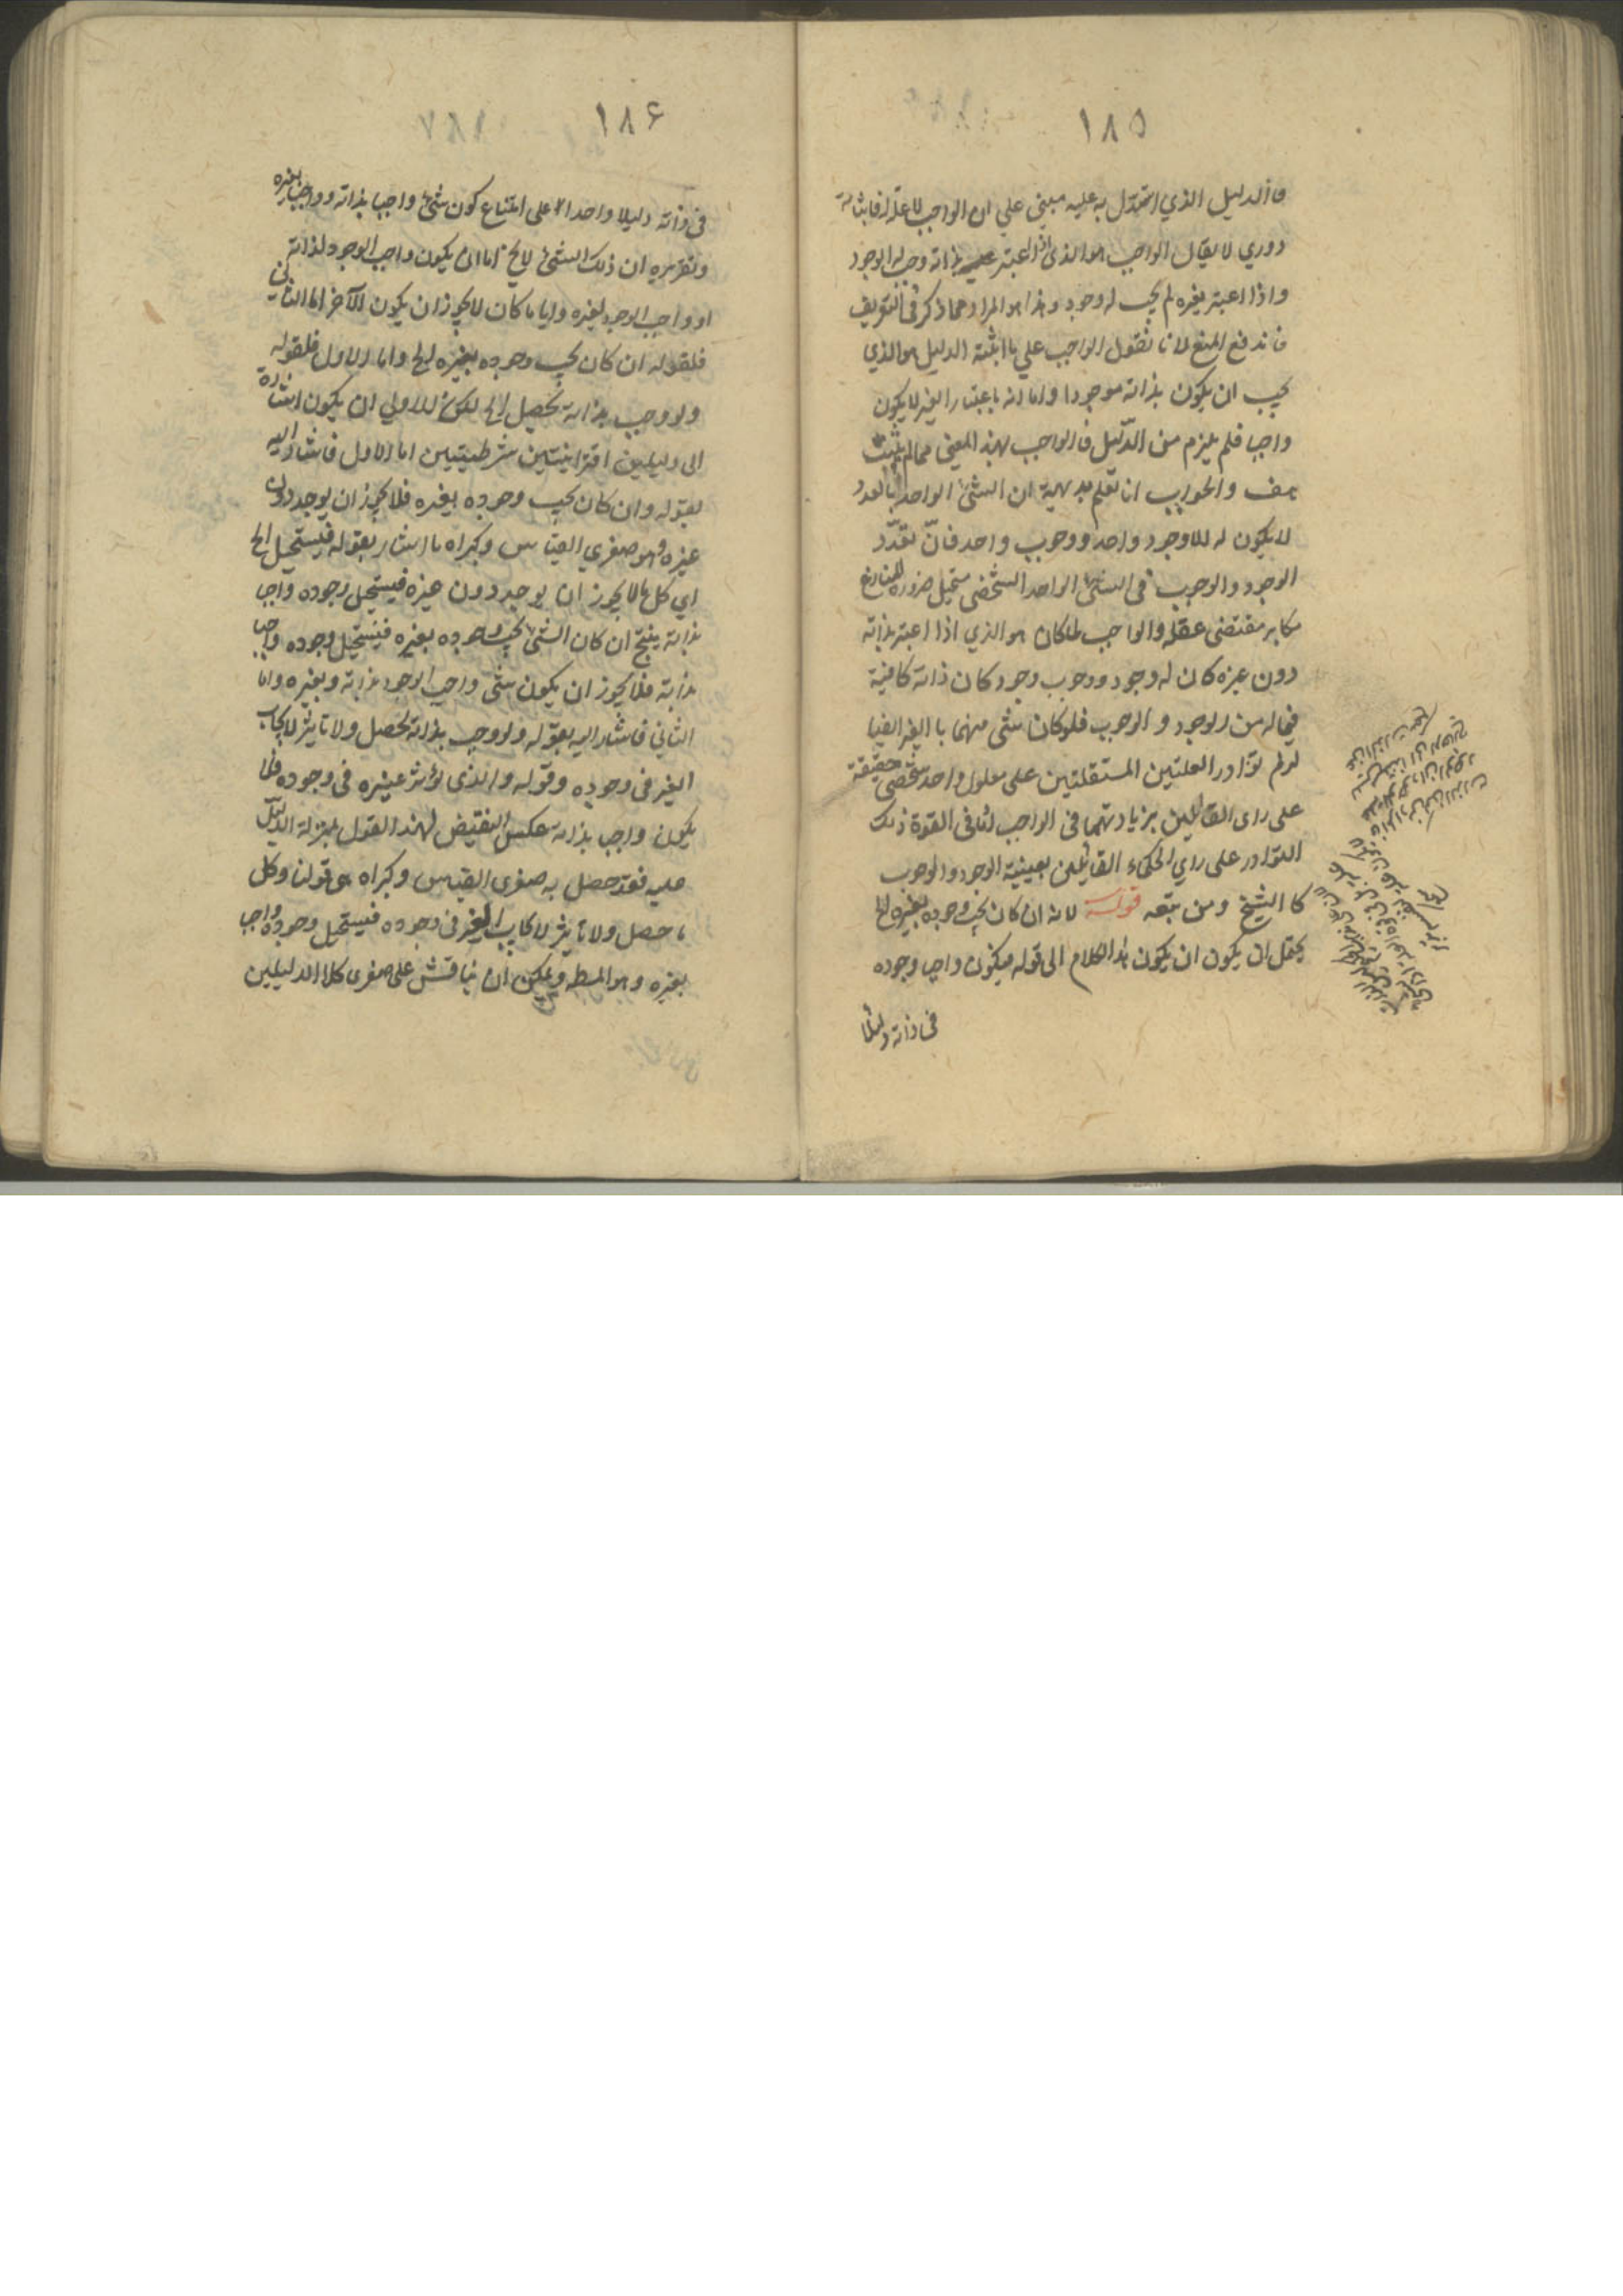 ١٨٥
فالدليل الذي استدل به عليه مبني علي ان الواجب لا علة له فاثباته
دوري لا يقال الواجب هو الذي اذا اعتبر بذاته وجب له الوجود
واذا اعتبر بغيره لم يجب له وجود وهذا هو المراد مما ذكر في التعريف
فاندفع المنع لانا نقول الواجب علي ما اثبته الدليل هو الذي
يجب ان يكون بذاته موجودا واما انه باعتبار الغير لا يكون
واجبا فلم يلزم من الدّليل فالواجب بهذا المعني مما لم يثبت
هف والجواب انا نعلم بديهية ان الشئ الواحد بالعدد
لا يكون له الا وجود واحد ووجوب واحد فانّ تعدّد
الوجود والوجوب في الشئ الواحد الشخصي مستحيل ضرورة المنازع
مكابر مقتضى عقله والواجب لما كان هو الذي اذا اعتبر بذاته
دون غيره كان له وجود ووجوب وجود كان ذاته كافية
فيما له من الوجود و الوجوب فلو كان شئ منهما بالغير ايضا
لزم توارد العلتين المستقلتين على معلول واحد شخصي حقيقة
على راى القائلين بزيادتهما في الواجب او في القوة ذلك
التوارد على راي الحكماء القائلين بعينية الوجود والوجوب
كالشيخ ومن تبعه قوله لانه ان كان يجب وجوده بغيره الخ
يحتمل ان يكون ان يكون هذا الكلام الى قوله فيكون واجبا وجوده
في ذاته دليلا
١٨۶
في ذاته دليلا واحدا على امتناع كون شئ واجبا بذاته وواجبا بغيره
وتقريره ان ذلك الشئ لا يخ اما ان يكون واجب الوجود لذاته
او واجب الوجود لغيره وايا ما كان لا يجوز ان يكون الآخر اما الثاني
فلقوله ان كان يجب وجوده بغيره الخ واما الاول فلقوله
ولو وجب بذاته تحصل الخ لكن الاولي ان يكون اشارة
الى دليلين اقترانيتين شرطيتين اما الاول فاشار اليه
بقوله وان كان يجب وجوده بغيره فلا يجوز ان يوجد دون
غيره وهو صغري القياس وكبراه ما اشار بقوله فيستحيل الخ
اي كل ما لا يجوز ان يوجد دون غيره فيستحيل وجوده واجبا
بذاته ينتج ان كان الشئ يجب وجوده بغيره فيستحيل وجوده واجبا
بذاته فلا يجوز ان يكون شئ واجب الوجود بذاته وبغيره واما
الثاني فاشار اليه بقوله ولو وجب بذاته لحصل ولا تاثير لايجاب
الغير في وجوده وقوله والذى يؤثر غيره في وجوده فلا
يكون واجبا بذاته عكس النقيض لهذا القول بمنزلة الدليل
عليه فقد حصل به صغرى القياس وكبراه هى قولنا وكل
ما حصل ولا تاثير لايجاب الغير في وجوده فيستحيل وجوده واجبا
بغيره وهو المط ويمكن ان يناقش على صغرى كلا الدليلين